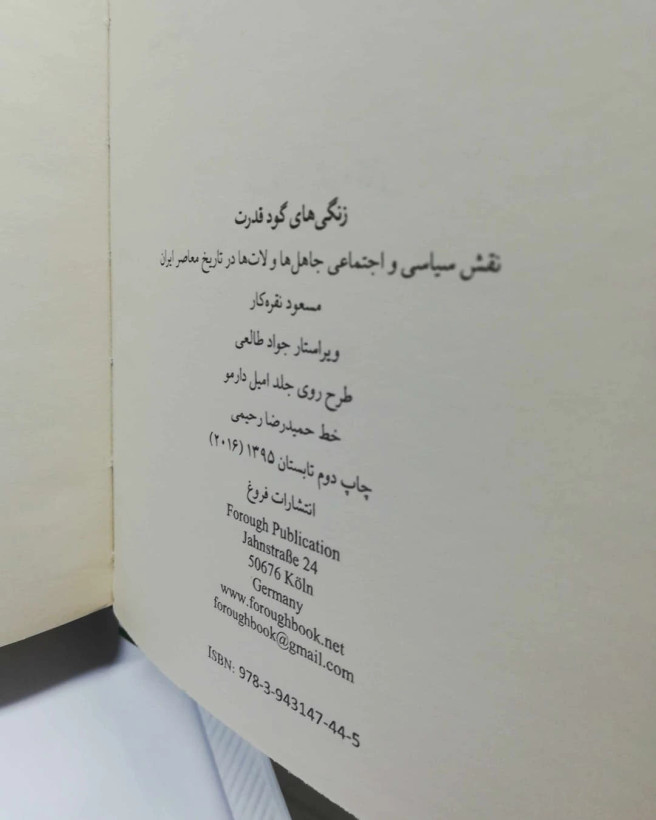 زنگی‌های گود قدرت
نقش سیاسی و اجتماعی جاهل‌ها و لات‌ها در تاریخ معاصر ایران
مسعود نقره‌کار
ویراستار جواد طالعی
طرح روی جلد امیل دارمو
خط حمیدرضا رحیمی
چاپ دوم تابستان ۱۳۹۵ (۲۰۱۶)
انتشارات فروغ
Forough Publication
Jahnstraße 24
50676 Köln
Germany
www.foroughbook.net
foroughbook@gmail.com
ISBN: 978-3-943147-44-5